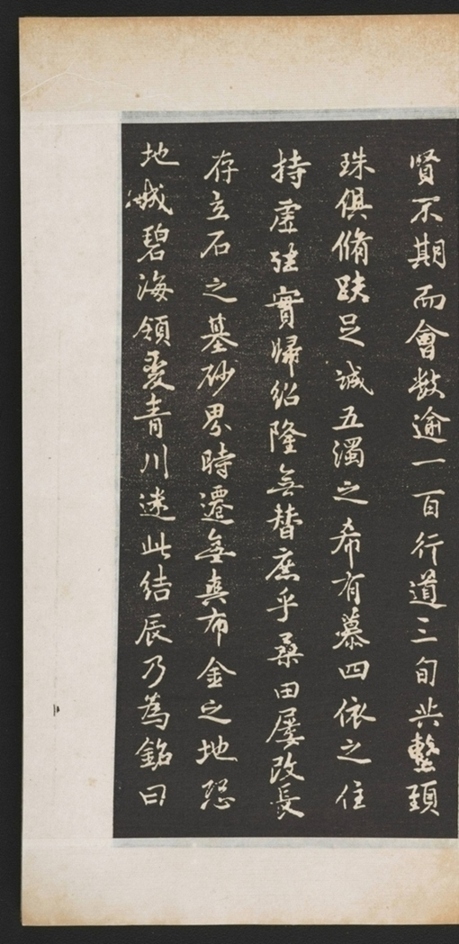 賢不期而會數逾一百行道三旬共繫頸
珠俱脩趺足誠五濁之希有慕四依之住
持虛往實歸紹隆無替庶乎桑田屢改長
存立石之基砂界時遷無真布金之地恐
地城碧海領變青川迷此結辰乃為銘曰